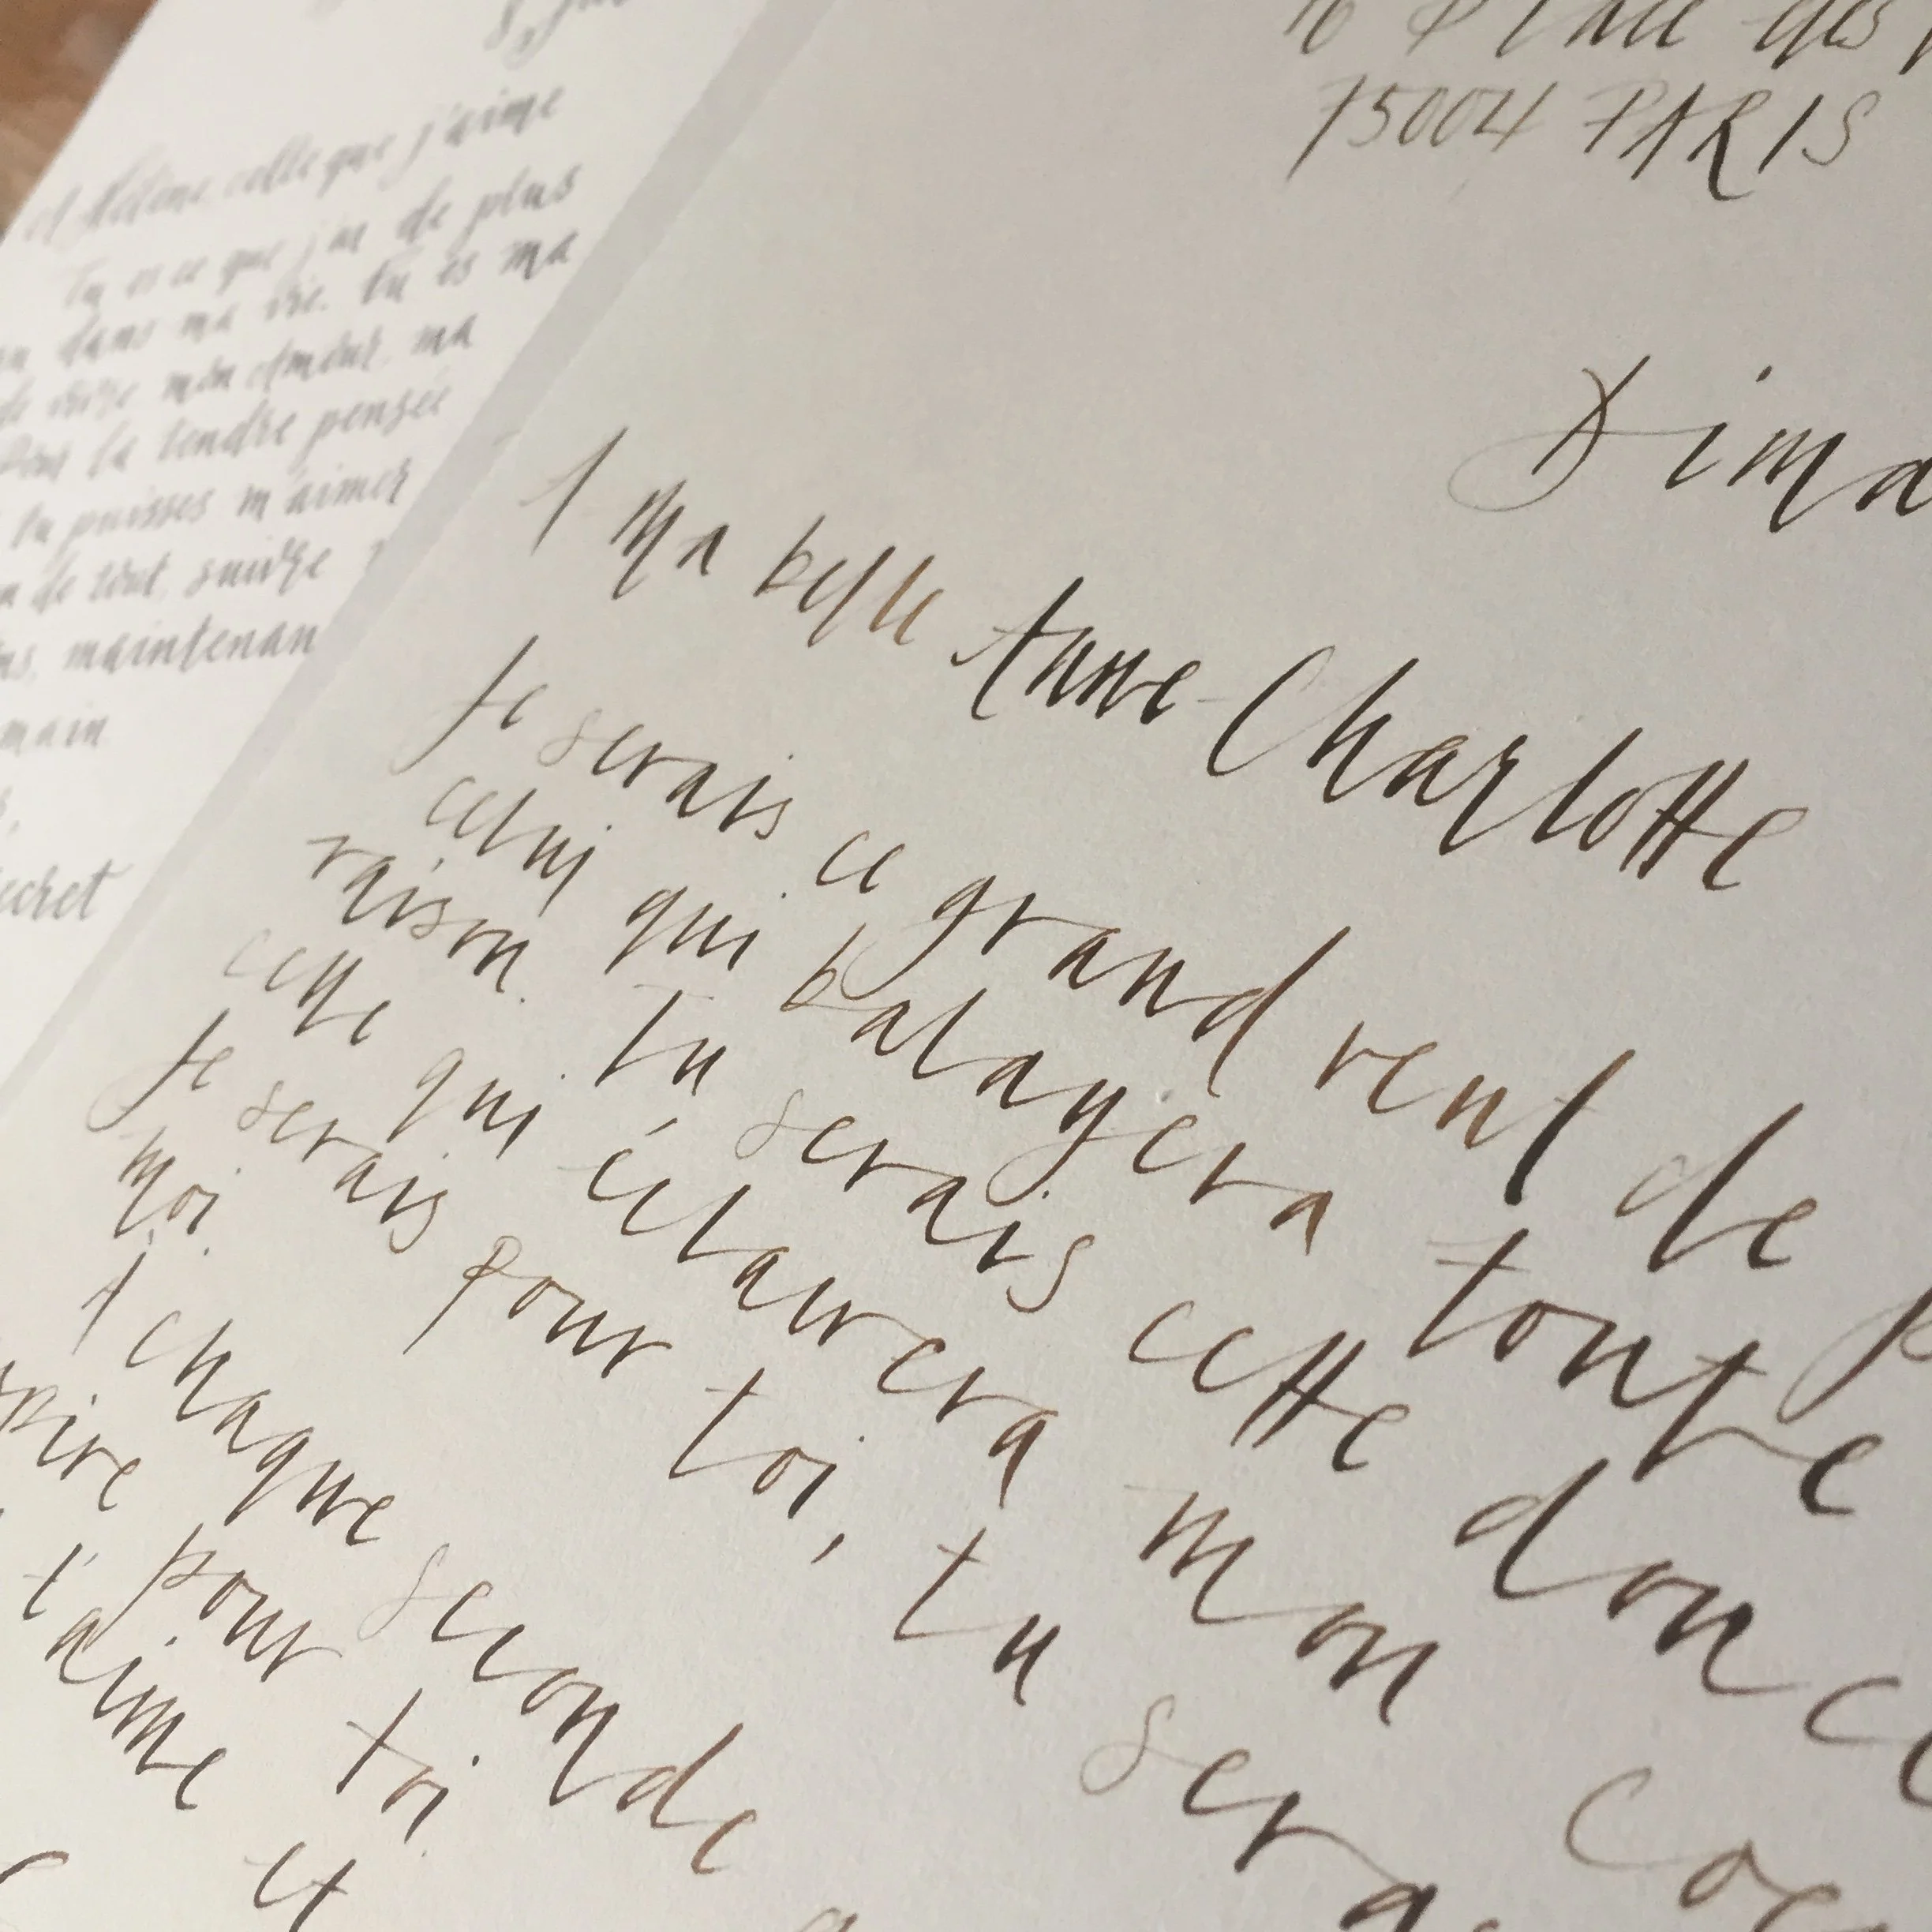 8,
A Hélène, celle que j'aime
Tu es ce que j'ai de plus
dans ma vie. Tu es ma
de vivre mon Amour, ma
Pour la tendre pensée
tu puisses m'aimer
de tout, suivre
maintenan
main
ecret
Place des
75004 PARIS
Dima
A ma belle Anne-Charlotte
Je serais ce grand vent de
celui qui balayera toute
raison. Tu serais cette douce
celle qui éclairera mon coe
Je serais pour toi, tu sera
moi.
A chaque seconde
pire pour toi
t'aime et